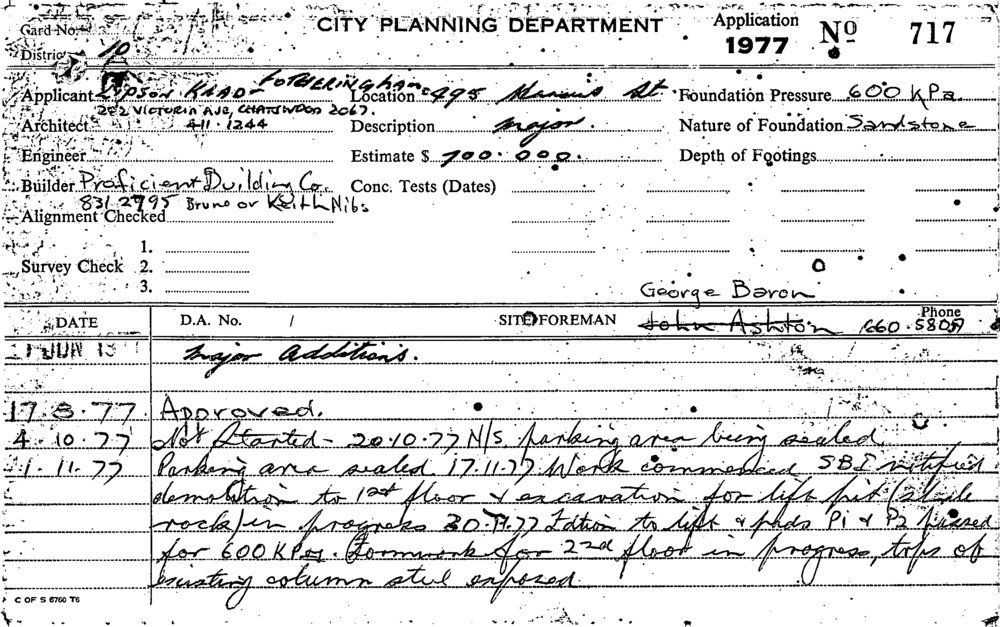 Card No.
CITY PLANNING DEPARTMENT
Application
1977
No 717
District 10
Applicant KEAD- FOTHERINGHAM
Location 495 St. Foundation Pressure 600 KPa.
282 VICTORIA AVE, CHATSWOOD 2067.
Architect 411-1244 Description major. Nature of Foundation Sandstone
Engineer Estimate $ 700.000. Depth of Footings
Builder Proficient Building Co. Conc. Tests (Dates)
831 2995 Bruno or Keith Nibs
Alignment Checked
1.
Survey Check 2.
3.
George Baron
DATE D.A. No. / SITE FOREMAN John Ashton Phone 660.5809
JUN major additions.
17.8.77 Approved.
4.10.77 Not Started - 20.10.77 N/S. parking area being sealed
1.11.77 Parking area sealed 17.11.77 Work commenced SBI notified
demolition to 1st floor & excavation for lift pit
rock) in progress 30.11.77 to lift & pads P1 & P2 passed
for 600 KPa. Formwork for 22d floor in progress, tops of
existing column steel exposed.
C OF S 6760 T6